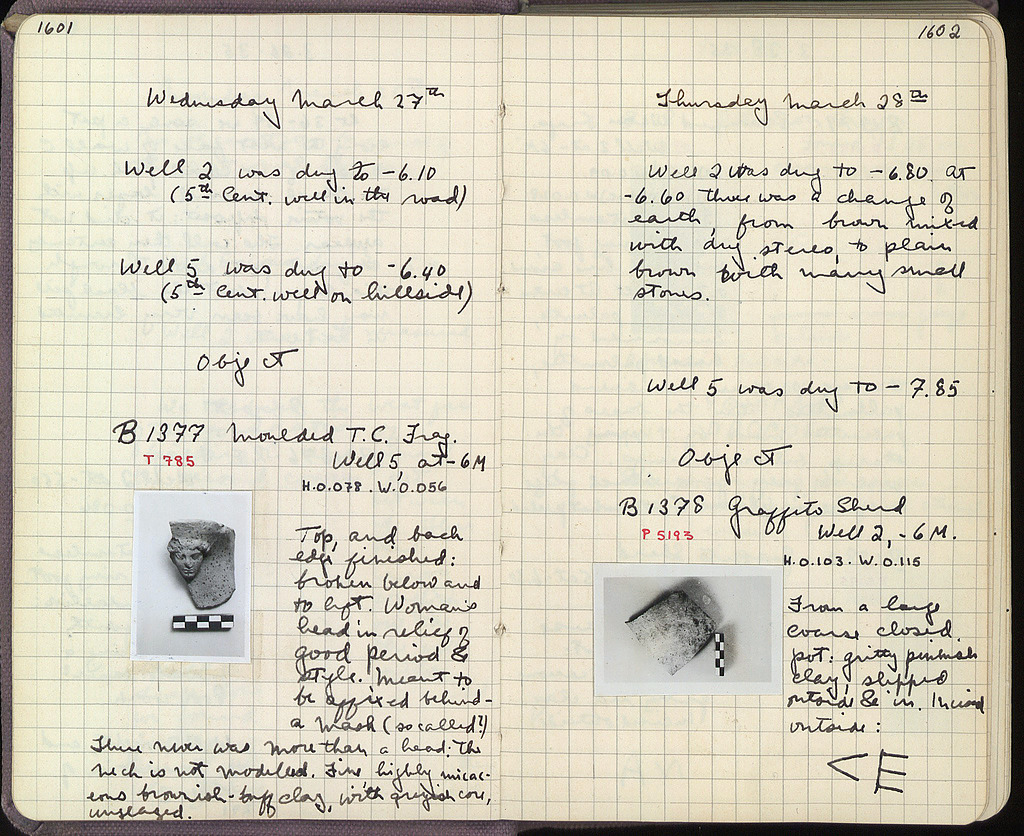 1601
Wednesday March 27th
Well 2 was dug to -6.10
(5th Cent. well in the road)
Well 5 was dug to -6.40
(5th Cent. well on hillside)
Object
B 1377 Moulded T.C. Frag.
T 785
Well 5, at -6M
H.0.078. W.0.056
Top, and back
edge finished:
broken below and
to left. Woman's
head in relief of
good period &
style. Meant to
be affixed behind
a mask (so called?)
There never was more than a head: the
neck is not modelled. Fine, highly micac-
eous brownish-buff clay, with greyish core,
unglazed.
1602
Thursday March 28th
Well 2 was dug to -6.80 at
-6.60 there was a change of
earth, from brown mixed
with dug stereo, to plain
brown with many small
stones.
Well 5 was dug to -7.85
Object
B 1378 Graffito Sherd
P 5193
Well 2, -6M.
H.0.103. W.0.115
From a large
coarse closed
pot: gritty pinkish
clay, slipped
outside & in. Incised
outside:
<E